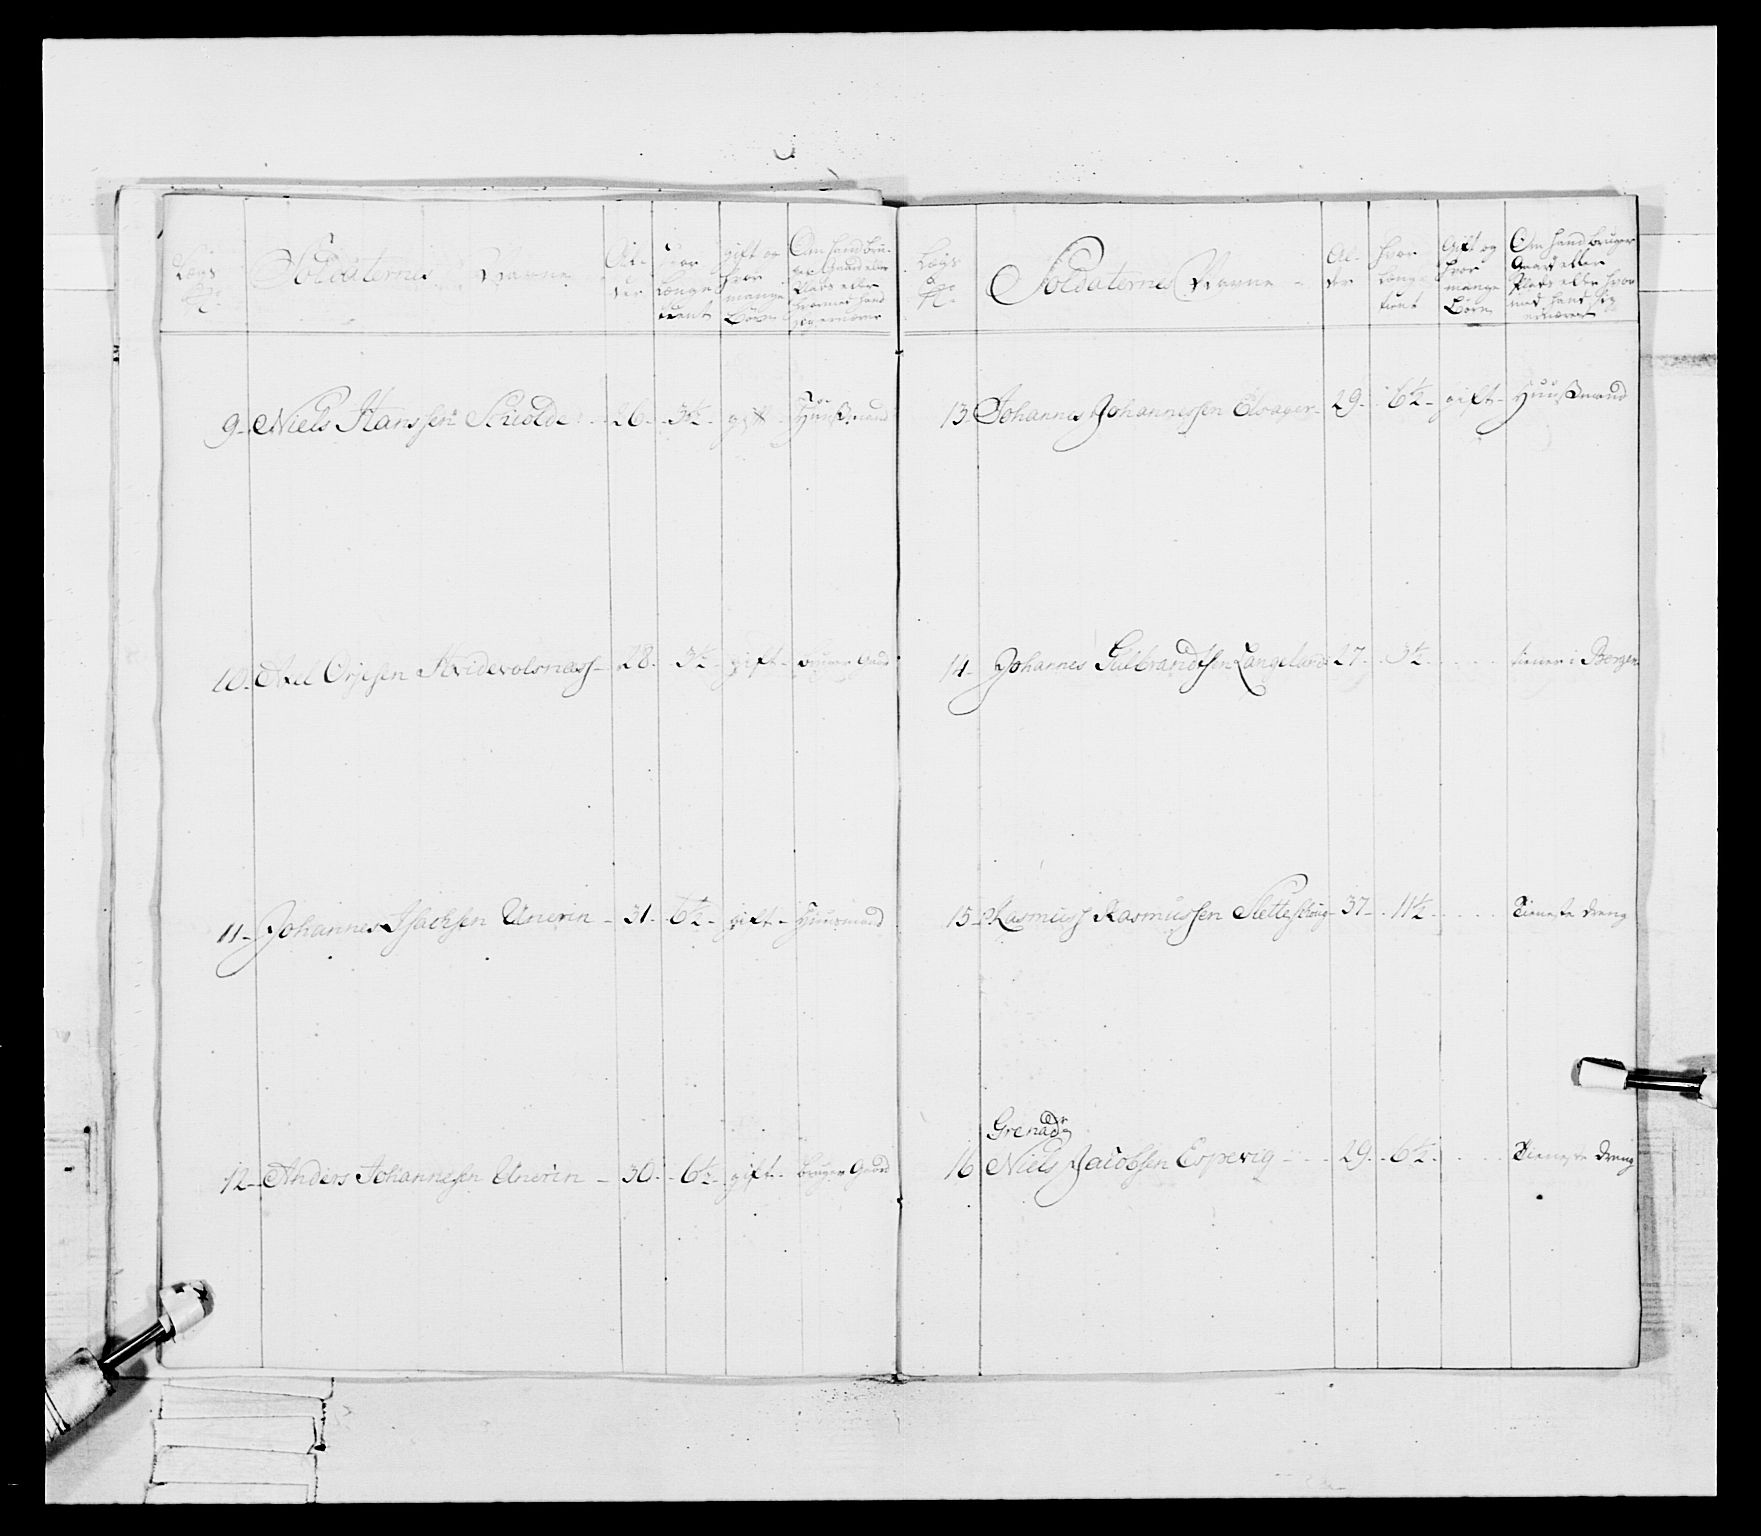 Lægs No
Soldaternes Navne
Al-
der
hvor
længe
tient
gift og
hvor
mange
Børn
Om hand bru-
ger Gaard eller
Plads eller
hvormed hand
9 Niels Hanssen Schiolde 26 3½ gift Huusmand
10 Axel Orjesen 28 3½ gift bruger Gaard
11 Johannes Isachsen Unerin 31 6½ gift Huusmand
12 Anders Johannesen Unerin 30 6½ gift bruger Gaard
Lægs No
Soldaternes Navne
Al-
der
hvor
længe
tient
Gift og
hvor
mange
Børn
Om hand bruger
Gaard eller
Plads eller hvor
med hand sig
ernærer
13 Johannes Johannessen Elvager 29 6½ gift Huusmand
14 Johannes Gulbrandtsen Langeland 27 3½ tiener i Bergen
15 Rasmus Rasmussen 37 11½ Tieneste dreng
Grenadr
16 Niels Jacobsen Espevig 29 6½ Tieneste dreng